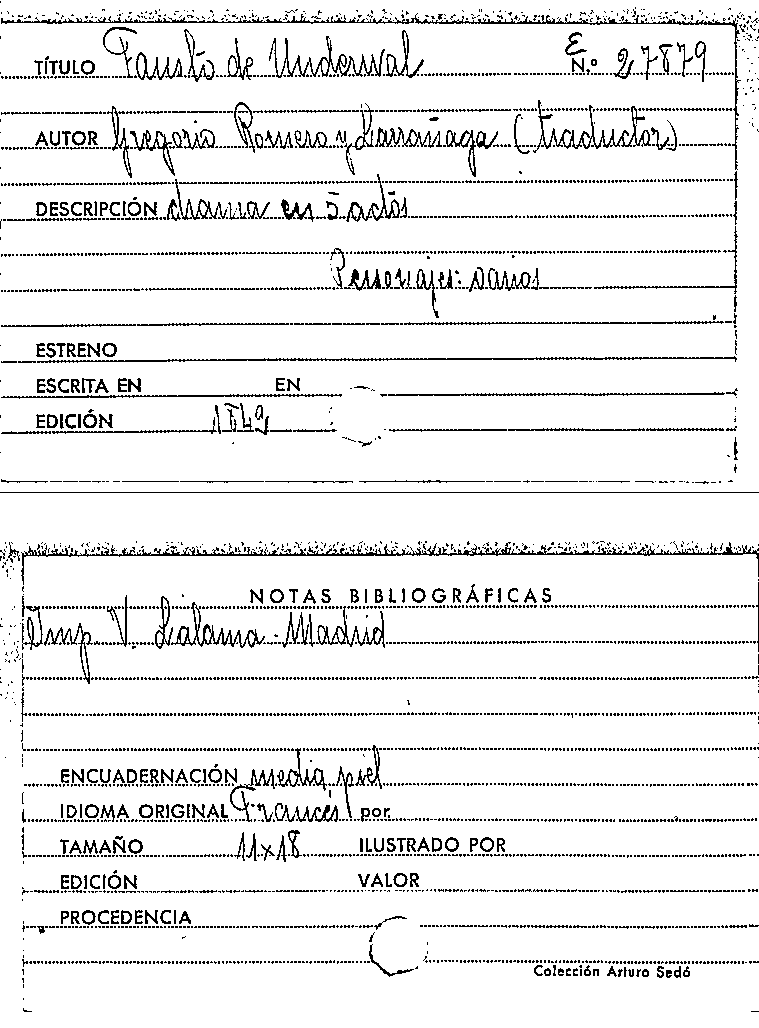 TÍTULO Fausto de Underwal E N.º 27879
AUTOR Gregorio Romero y Larrañaga (traductor)
DESCRIPCIÓN drama en 5 actos
Personajes: varios
ESTRENO
ESCRITA EN EN
EDICIÓN 1849
NOTAS BIBLIOGRÁFICAS
Imp. V. Lalama - Madrid
ENCUADERNACIÓN media piel
IDIOMA ORIGINAL Francés por
TAMAÑO 11x18 ILUSTRADO POR
EDICIÓN VALOR
PROCEDENCIA
Colección Arturo Sedó